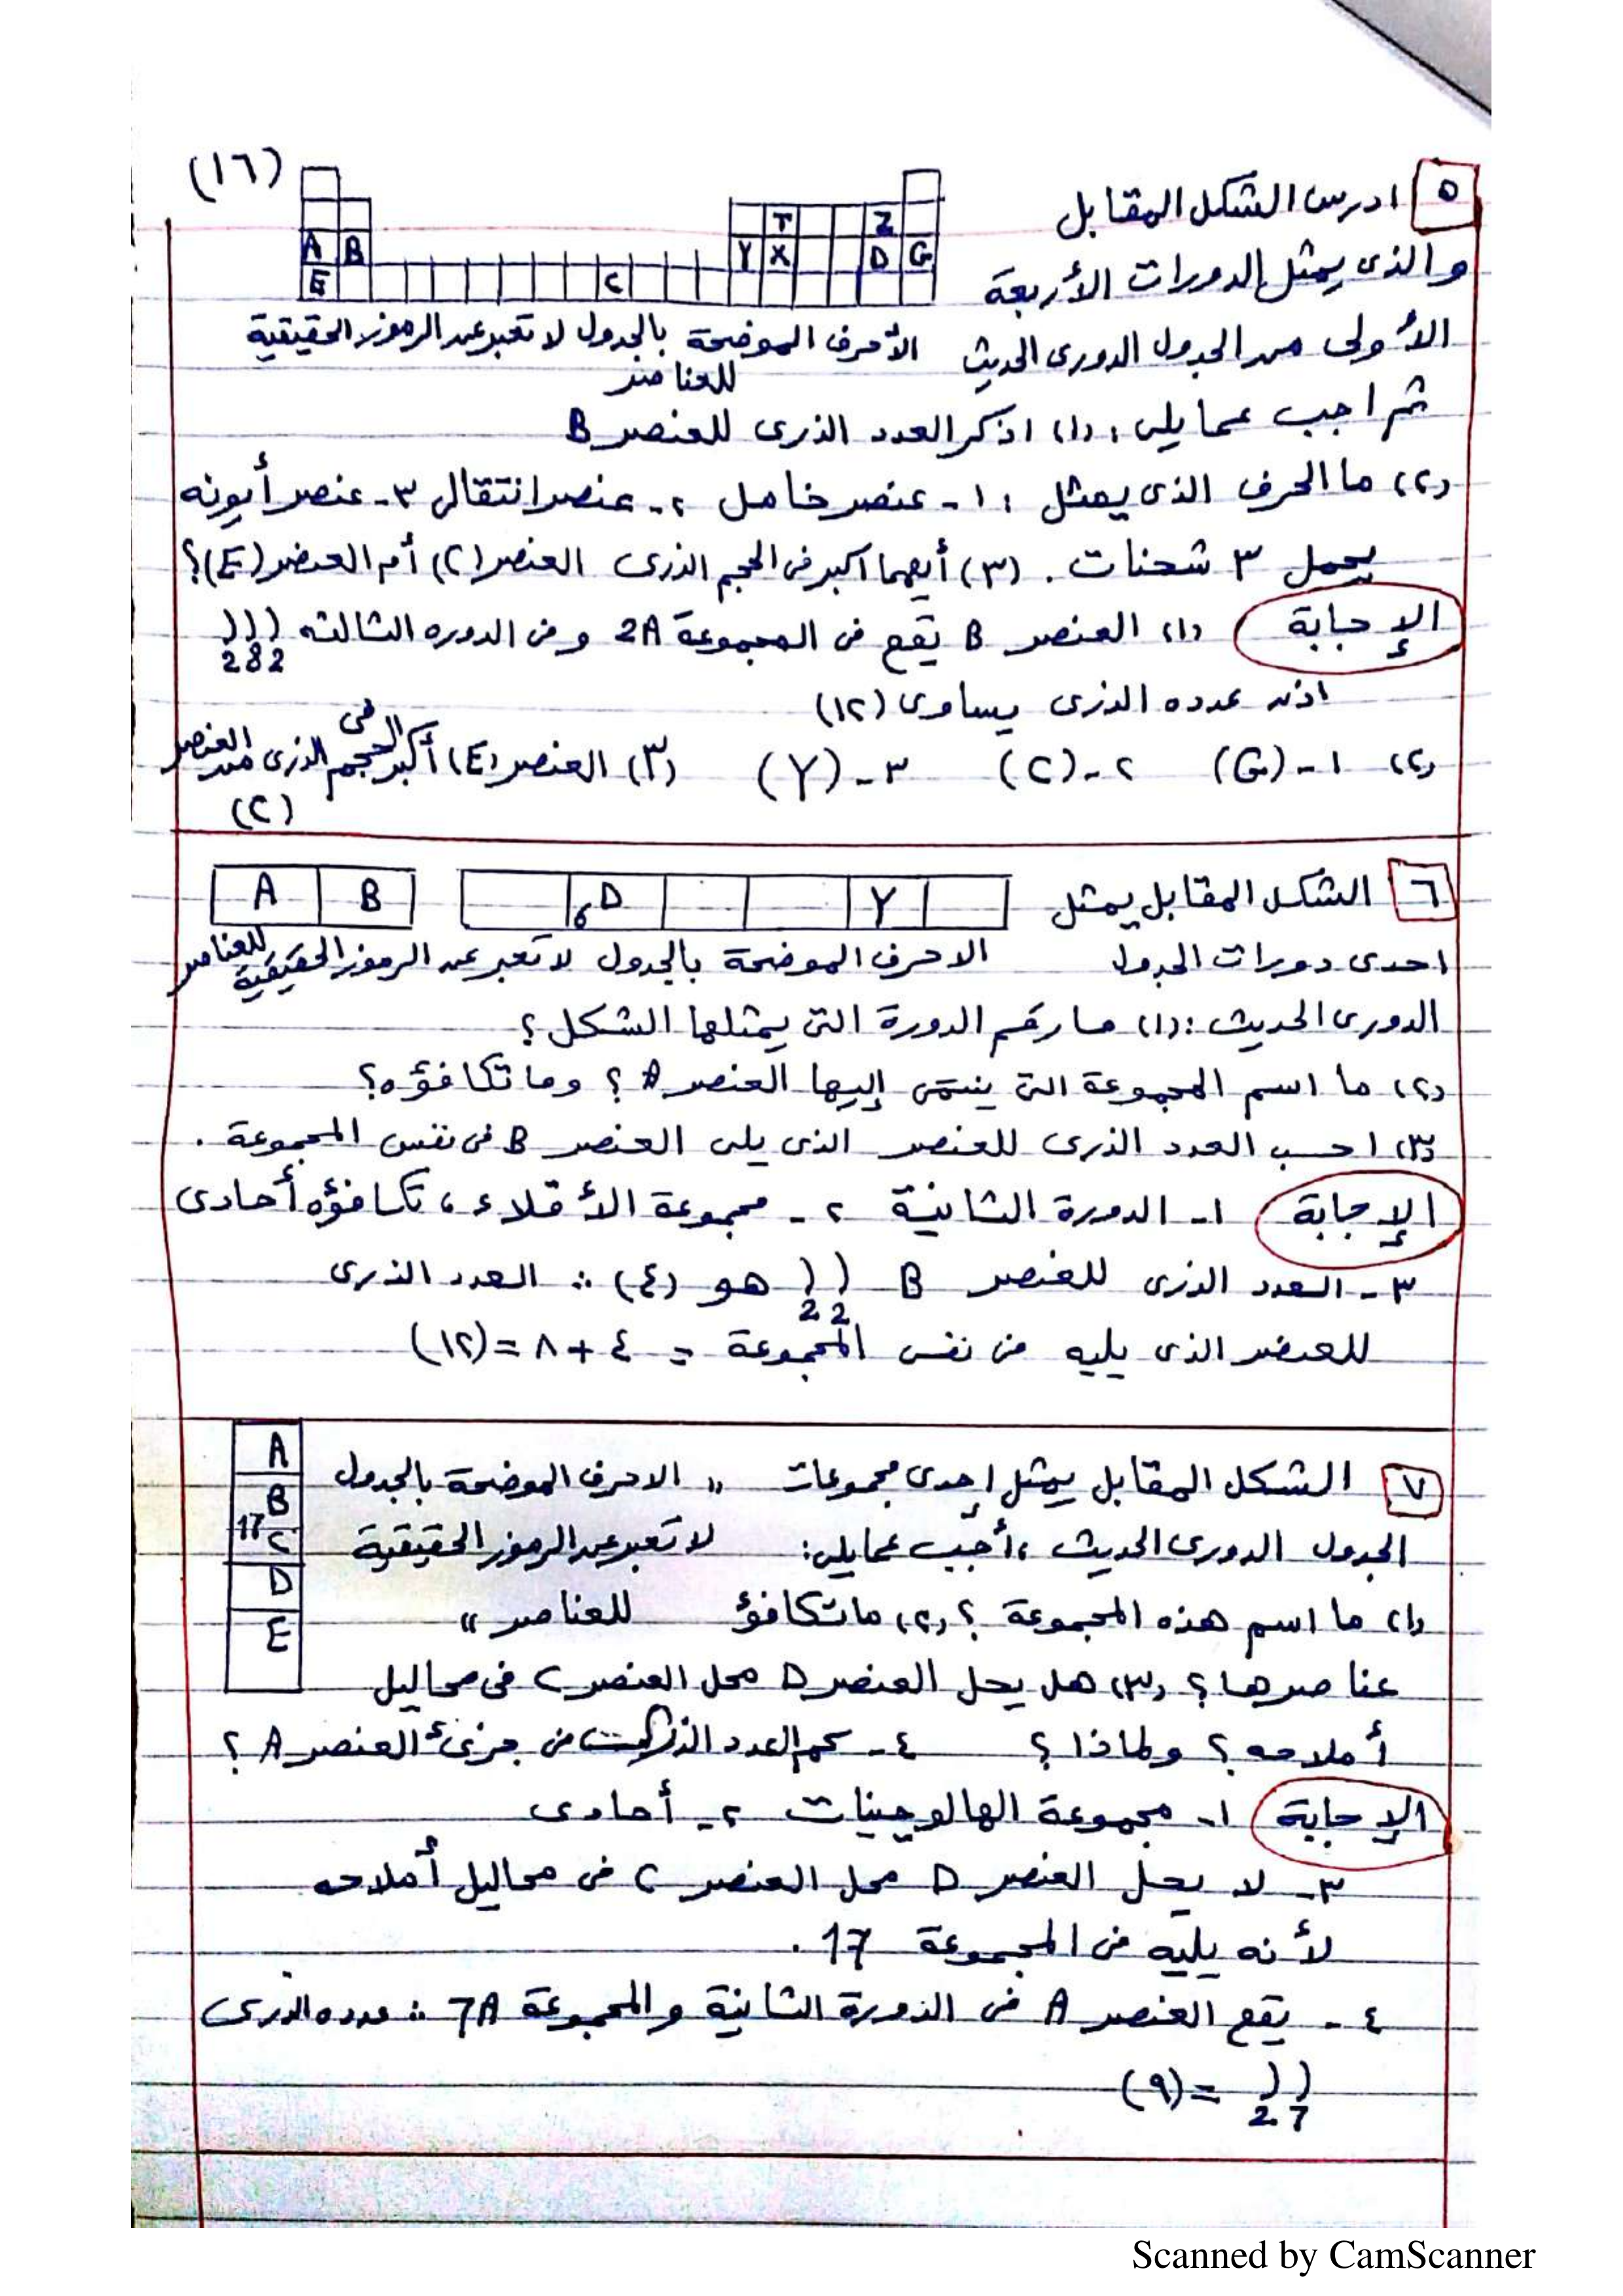 (١٦)
٥ ادرس الشكل المقابل
T Z
A B Y X D G
E C
والذى يمثل الدورات الأربعة
الأولى من الجدول الدورى الحديث الأحرف الموضحة بالجدول لا تعبر عن الرموز الحقيقية
للعناصر
ثم اجب عما يلى : (١) اذكر العدد الذرى للعنصر B
(٢) ما الحرف الذى يمثل : ١- عنصر خامل ٢- عنصر انتقالى ٣- عنصر أيونه
يحمل ٣ شحنات . (٣) أيهما اكبر فى الحجم الذرى العنصر (C) أم العنصر (E)؟
الإجابة (١) العنصر B يقع فى المجموعة 2A وفى الدوره الثالثه
2 8 2
اذن عدده الذرى يساوى (١٢)
(٢) ١- (G) ٢- (C) ٣- (Y) (٣) العنصر (E) أكبر فى الحجم الذرى من العنصر
(C)
٦ الشكل المقابل يمثل
A B 6D Y
احدى دورات الجدول الاحرف الموضحة بالجدول لا تعبر عن الرموز الحقيقية للعناصر
الدورى الحديث : (١) ما رقم الدورة التى يمثلها الشكل ؟
(٢) ما اسم المجموعة التى ينتمى إليها العنصر A ؟ وما تكافؤه؟
(٣) احسب العدد الذرى للعنصر الذى يلى العنصر B فى نفس المجموعة .
الإجابة ١- الدورة الثانية ٢- مجموعة الأقلاء ، تكافؤه أحادى
٣- العدد الذرى للعنصر B هو (٤) ∴ العدد الذرى
2 2
للعنصر الذى يليه فى نفس المجموعة = ٤ + ٨ = (١٢)
٧ الشكل المقابل يمثل إحدى مجموعات " الاحرف الموضحة بالجدول
A
B
17C
D
E
الجدول الدورى الحديث ، أجب عما يلى: لا تعبر عن الرموز الحقيقية
(١) ما اسم هذه المجموعة ؟ (٢) ما تكافؤ للعناصر "
عناصرها ؟ (٣) هل يحل العنصر D محل العنصر C فى محاليل
أملاحه ؟ ولماذا ؟ ٤- كم العدد فى جزئ العنصر A ؟
الإجابة ١- مجموعة الهالوجينات ٢- أحادى
٣- لا يحل العنصر D محل العنصر C فى محاليل أملاحه
لأنه يليه فى المجموعة 17 .
٤- يقع العنصر A فى الدورة الثانية والمجموعة 7A ∴ عدده الذرى
= (٩)
2 7
Scanned by CamScanner